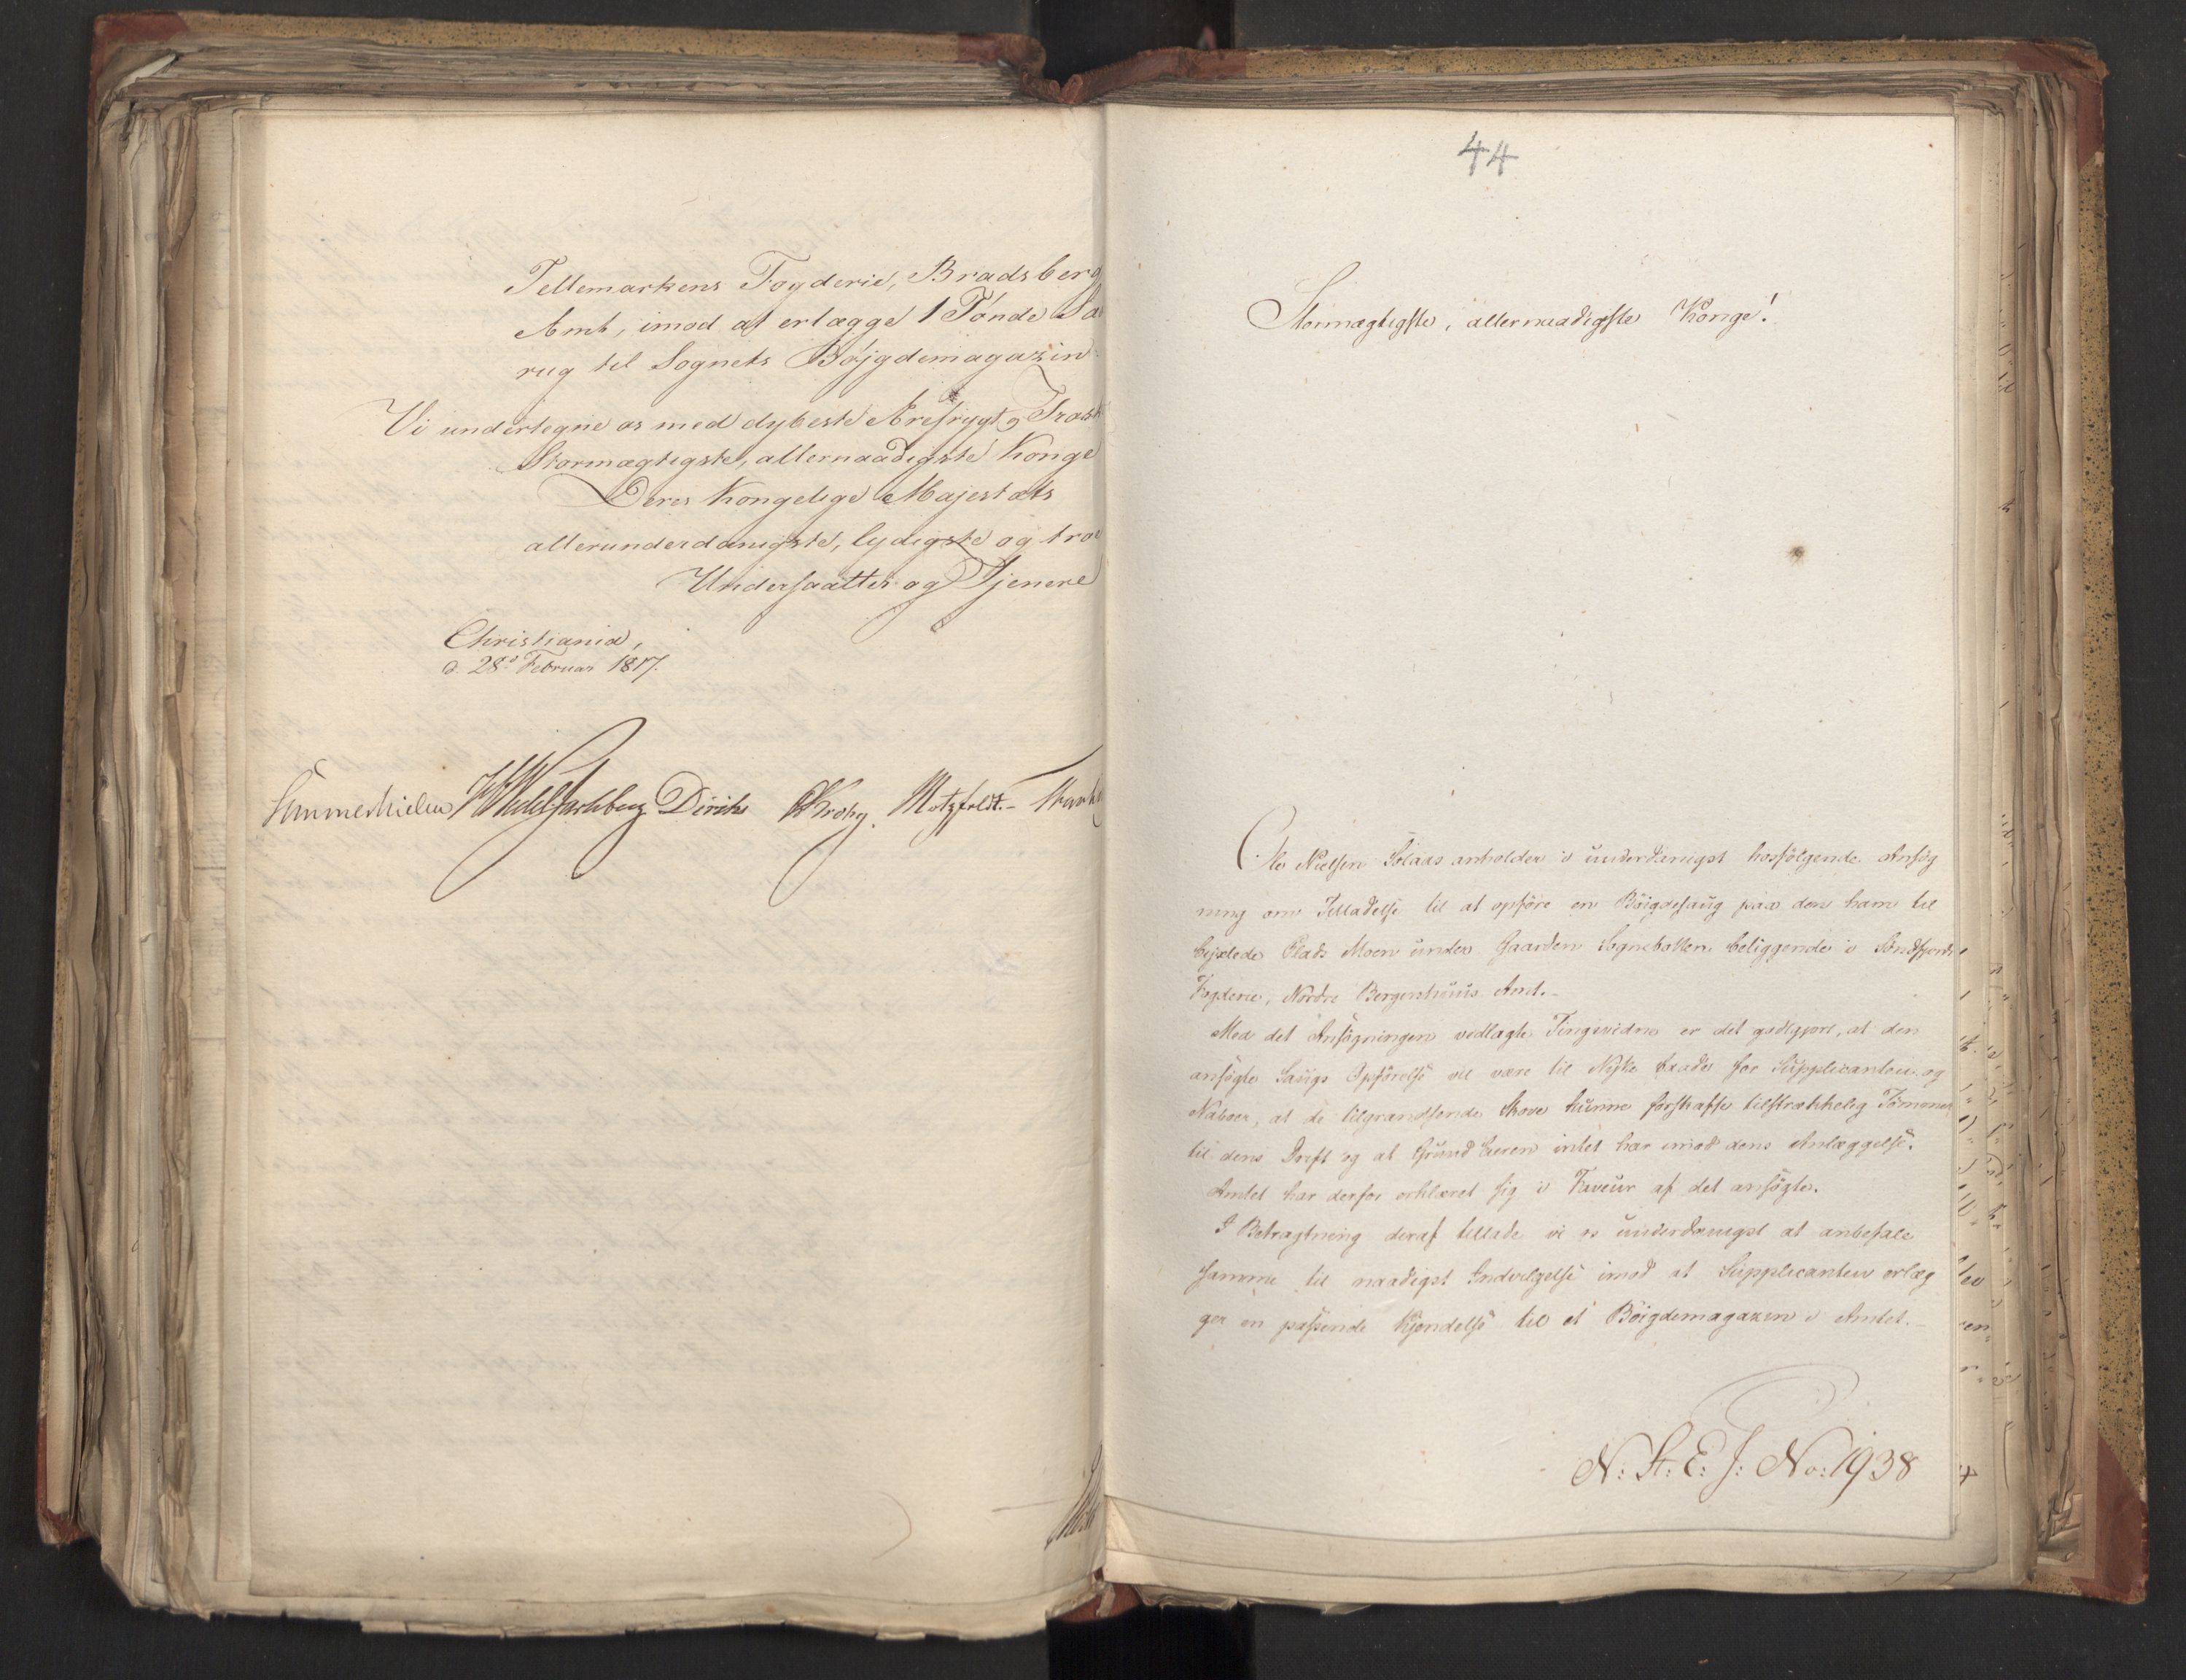 Tellemarkens Fogderie, Bradsberg
Amt, imod at erlægge 1 Tønde Sa
rug til Sognets Bøjgdemagazin.
Vi undertegne os med dybeste Ærefrygt og Troesk
Stormægtigste, allernaadigste Konge
Deres Kongelige Majestæts
allerunderdanigste, lydigste og troe
Undersaatter og Tjenere
Christiania,
d. 28d Februar 1817.
Sommerhielm HWedelJarlsberg Diriks CKrohg. Motzfeldt.-
44
Stormægtigste, allernaadigste Konge!
Ole Nielsen Solaas anholder i underdanigst hosfølgende Ansøg
ning om Tilladelse til at opføre en Bøigdesaug paa den ham til
bejxlede Plads Moen under Gaarden Sognebotten beliggende i Søndfjords
Fogderie, Nordre Bergenhuus Amt.-
Med det Ansøgningen vedlagte Tingsvidne er det godtgjort, at den
ansøgte Saugs Opførelse vil være til Nytte baade for Supplicanten og
Naboer, at de tilgrændsende Skove kunne forskaffe tilstrækkelig Tømmer
til dens Drift og at Grund Eieren intet har imod dens Anlæggelse.
Amtet har derfor erklæret sig i Faveur af det ansøgte.
I Betragtning deraf tillade vi os underdanigst at anbefale
samme til naadigst Indvilgelse imod at Supplicanten erlæg
ger en passende Kjendelse til et Bøigdemagazin i Amtet.-
N: St: E: J: No: 1938